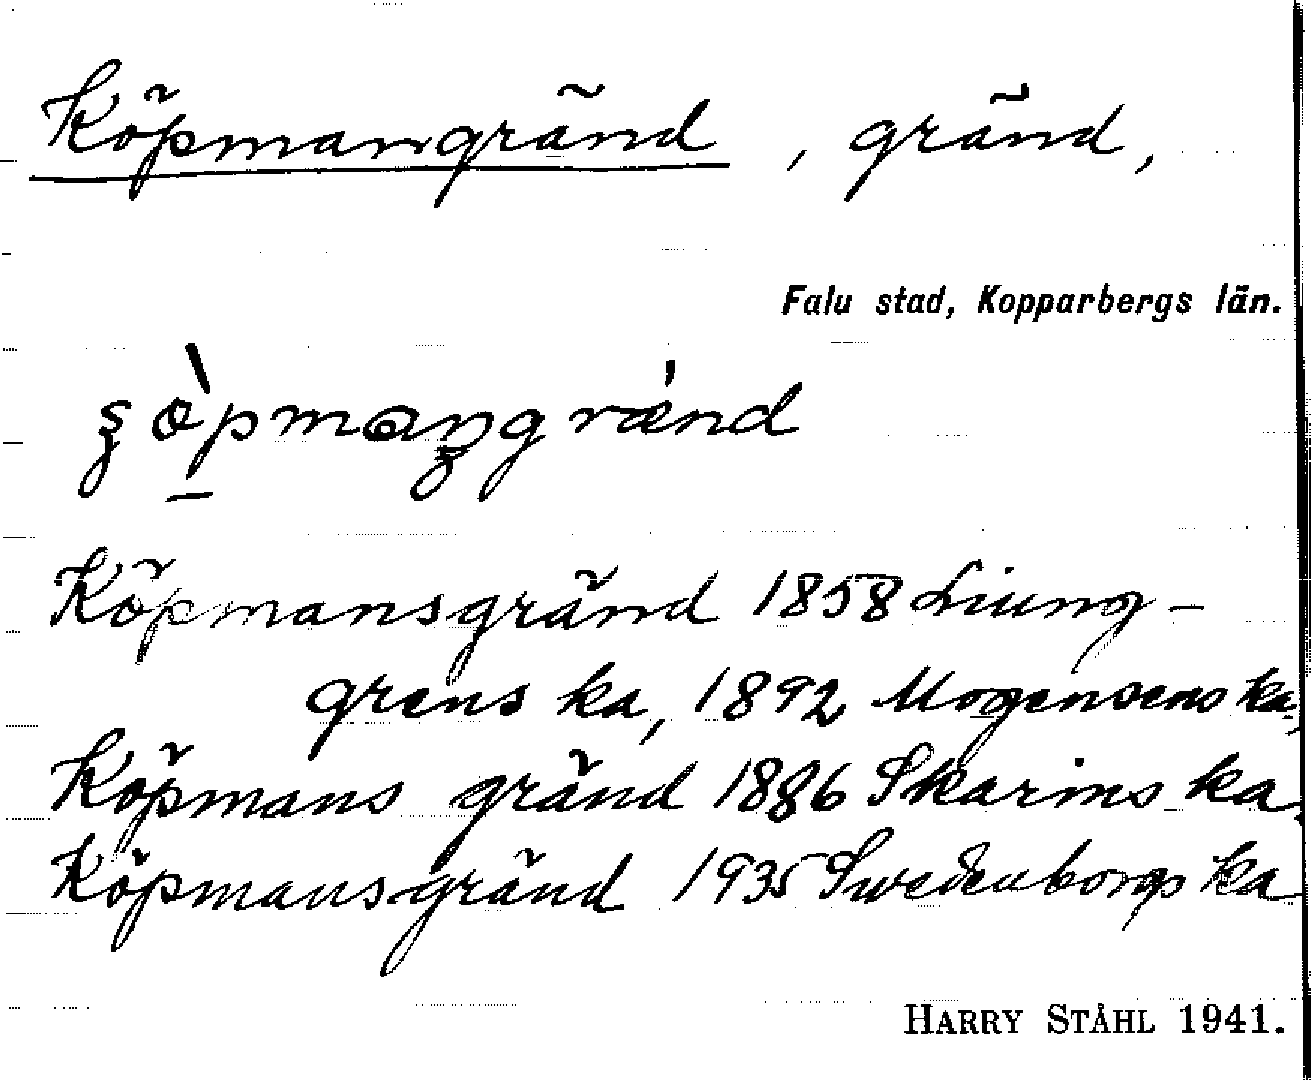 Köpmangränd, gränd,
Falu stad, Kopparbergs län.
Köpmansgränd 1858 Liung-
grens ka, 1892 Mogensens ka,
Köpmans gränd 1886 Skarins ka
Köpmansgränd 1935 Swedenborgs ka
HARRY STÅHL 1941.